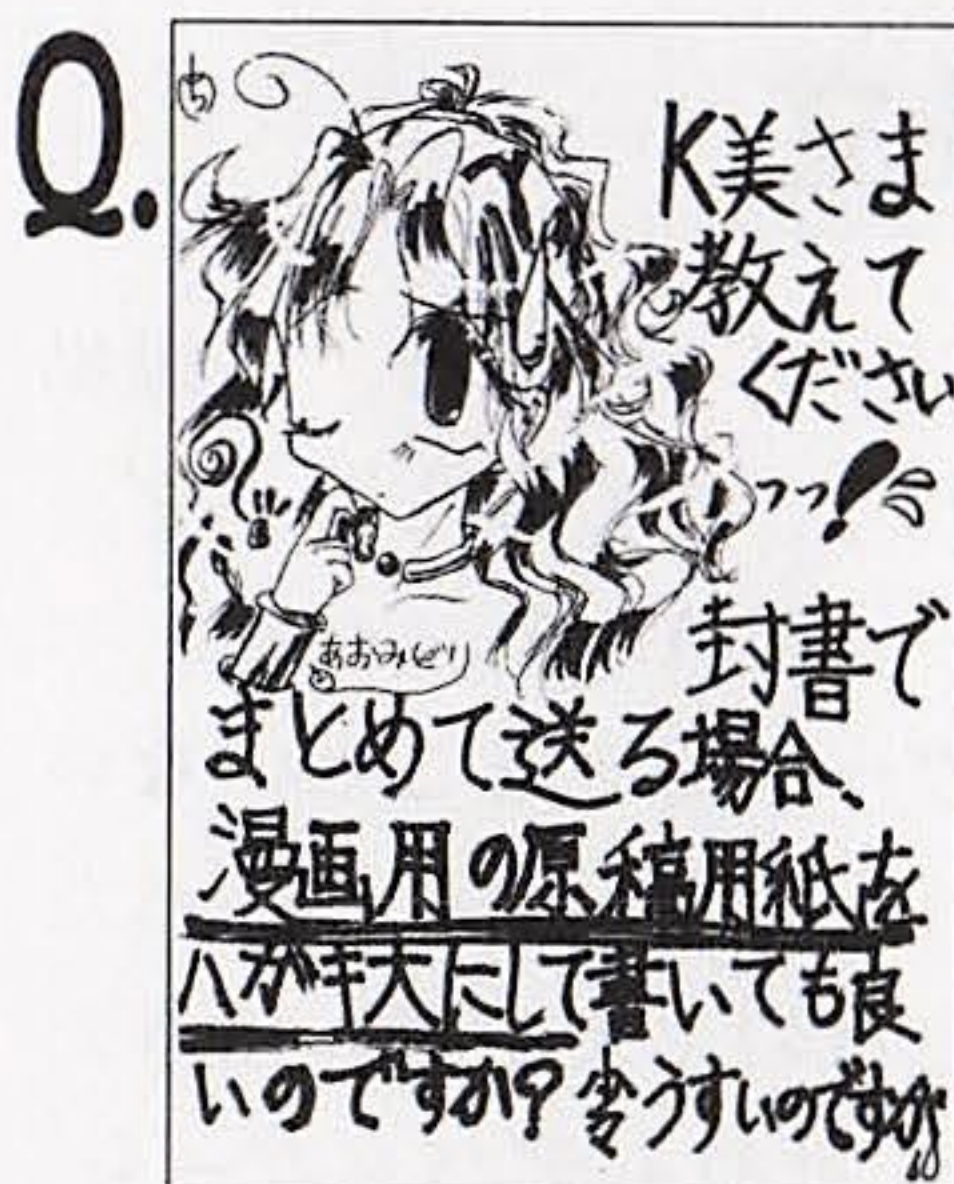 Q.
ち
K美さま
教えて
ください
っっ!
あおみどり
封書で
まとめて送る場合、
漫画用の原稿用紙を
ハガキ大にして書いても良
いのですか? 少々うすいのですが